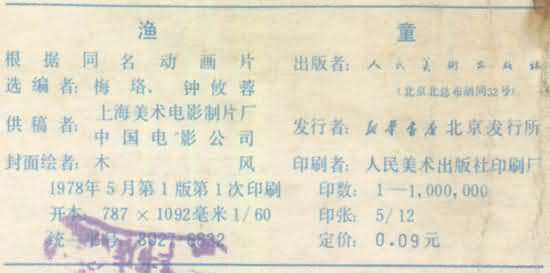 渔童
根据同名动画片
选编者：梅 珞、钟攸蓉
供稿者：上海美术电影制片厂
中国电影公司
封面绘者：木 风
1978年5月第1版第1次印刷
开本：787×1092毫米1/60
统一书号：8027·6832
出版者：人民美术出版社
（北京北总布胡同32号）
发行者：新华书店北京发行所
印刷者：人民美术出版社印刷厂
印数：1—1,000,000
印张：5/12
定价：0.09元